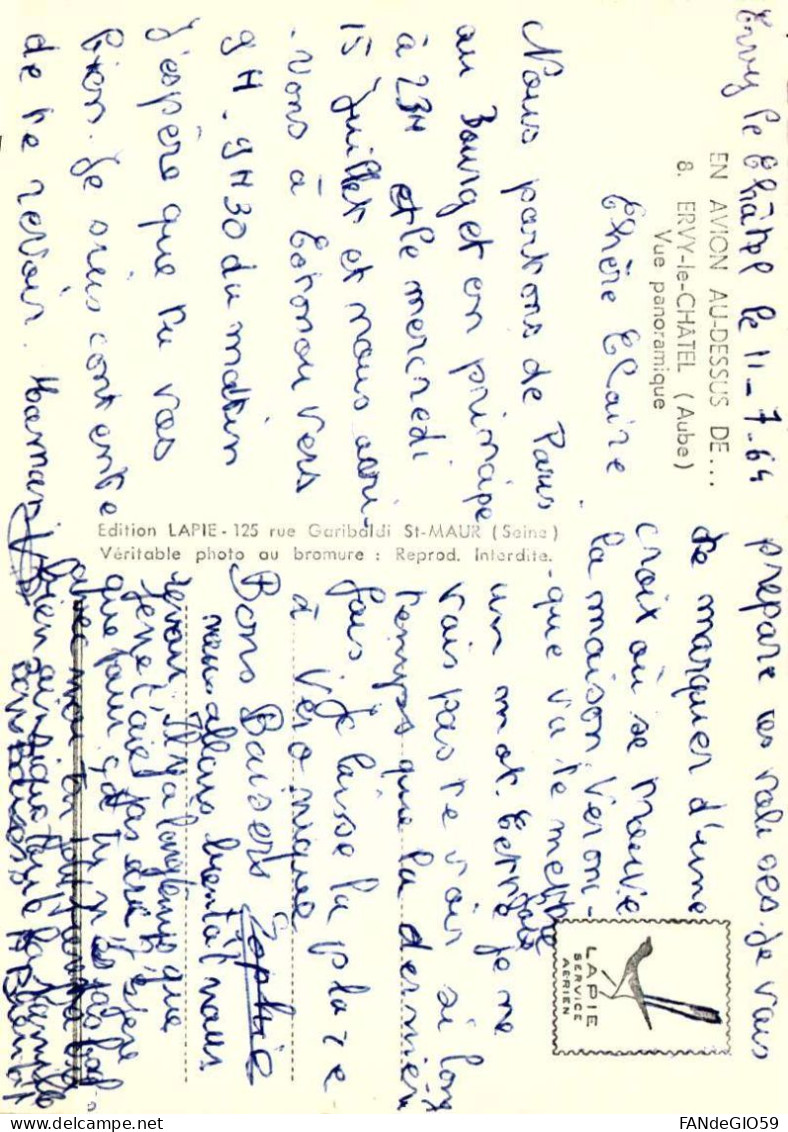 Ervy le Châtel le 11-7-64
EN AVION AU-DESSUS DE...
8. ERVY-le-CHATEL (Aube)
Vue panoramique
Chère Claire
Nous partons de Paris
au Bourget en principe
à 23H et le mercredi
15 juillet et nous arri-
vons à Cotonou vers
9H - 9H30 du matin
J'espère que tu vas
bien. Je suis contente
de te revoir. Maman
prepare les valises. Je vais
te marquer d'une
croix où se trouve
la maison. Veroni-
que va te mettre
un mot. Cette fois je ne
vais pas te voir si long
temps que la dernière
fois. Je laisse la place
à Veronique
Bons Baisers Sophie
nous allons bientôt nous
revoir, Il y a longtemps que
je ne t'ai pas écrit. J'espère
que tu n'es pas
avec mon
bien ainsi que toute la famille
Bientôt
Edition LAPIE - 125 rue Garibaldi St-MAUR (Seine)
Véritable photo au bromure : Reprod. Interdite.
LAPIE
SERVICE
AERIEN
FANdeGIO59